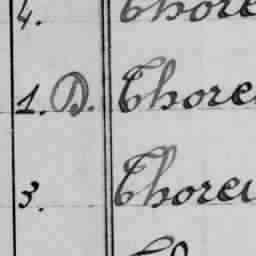 4. Thore
1. D. Thore
3. Thoreu